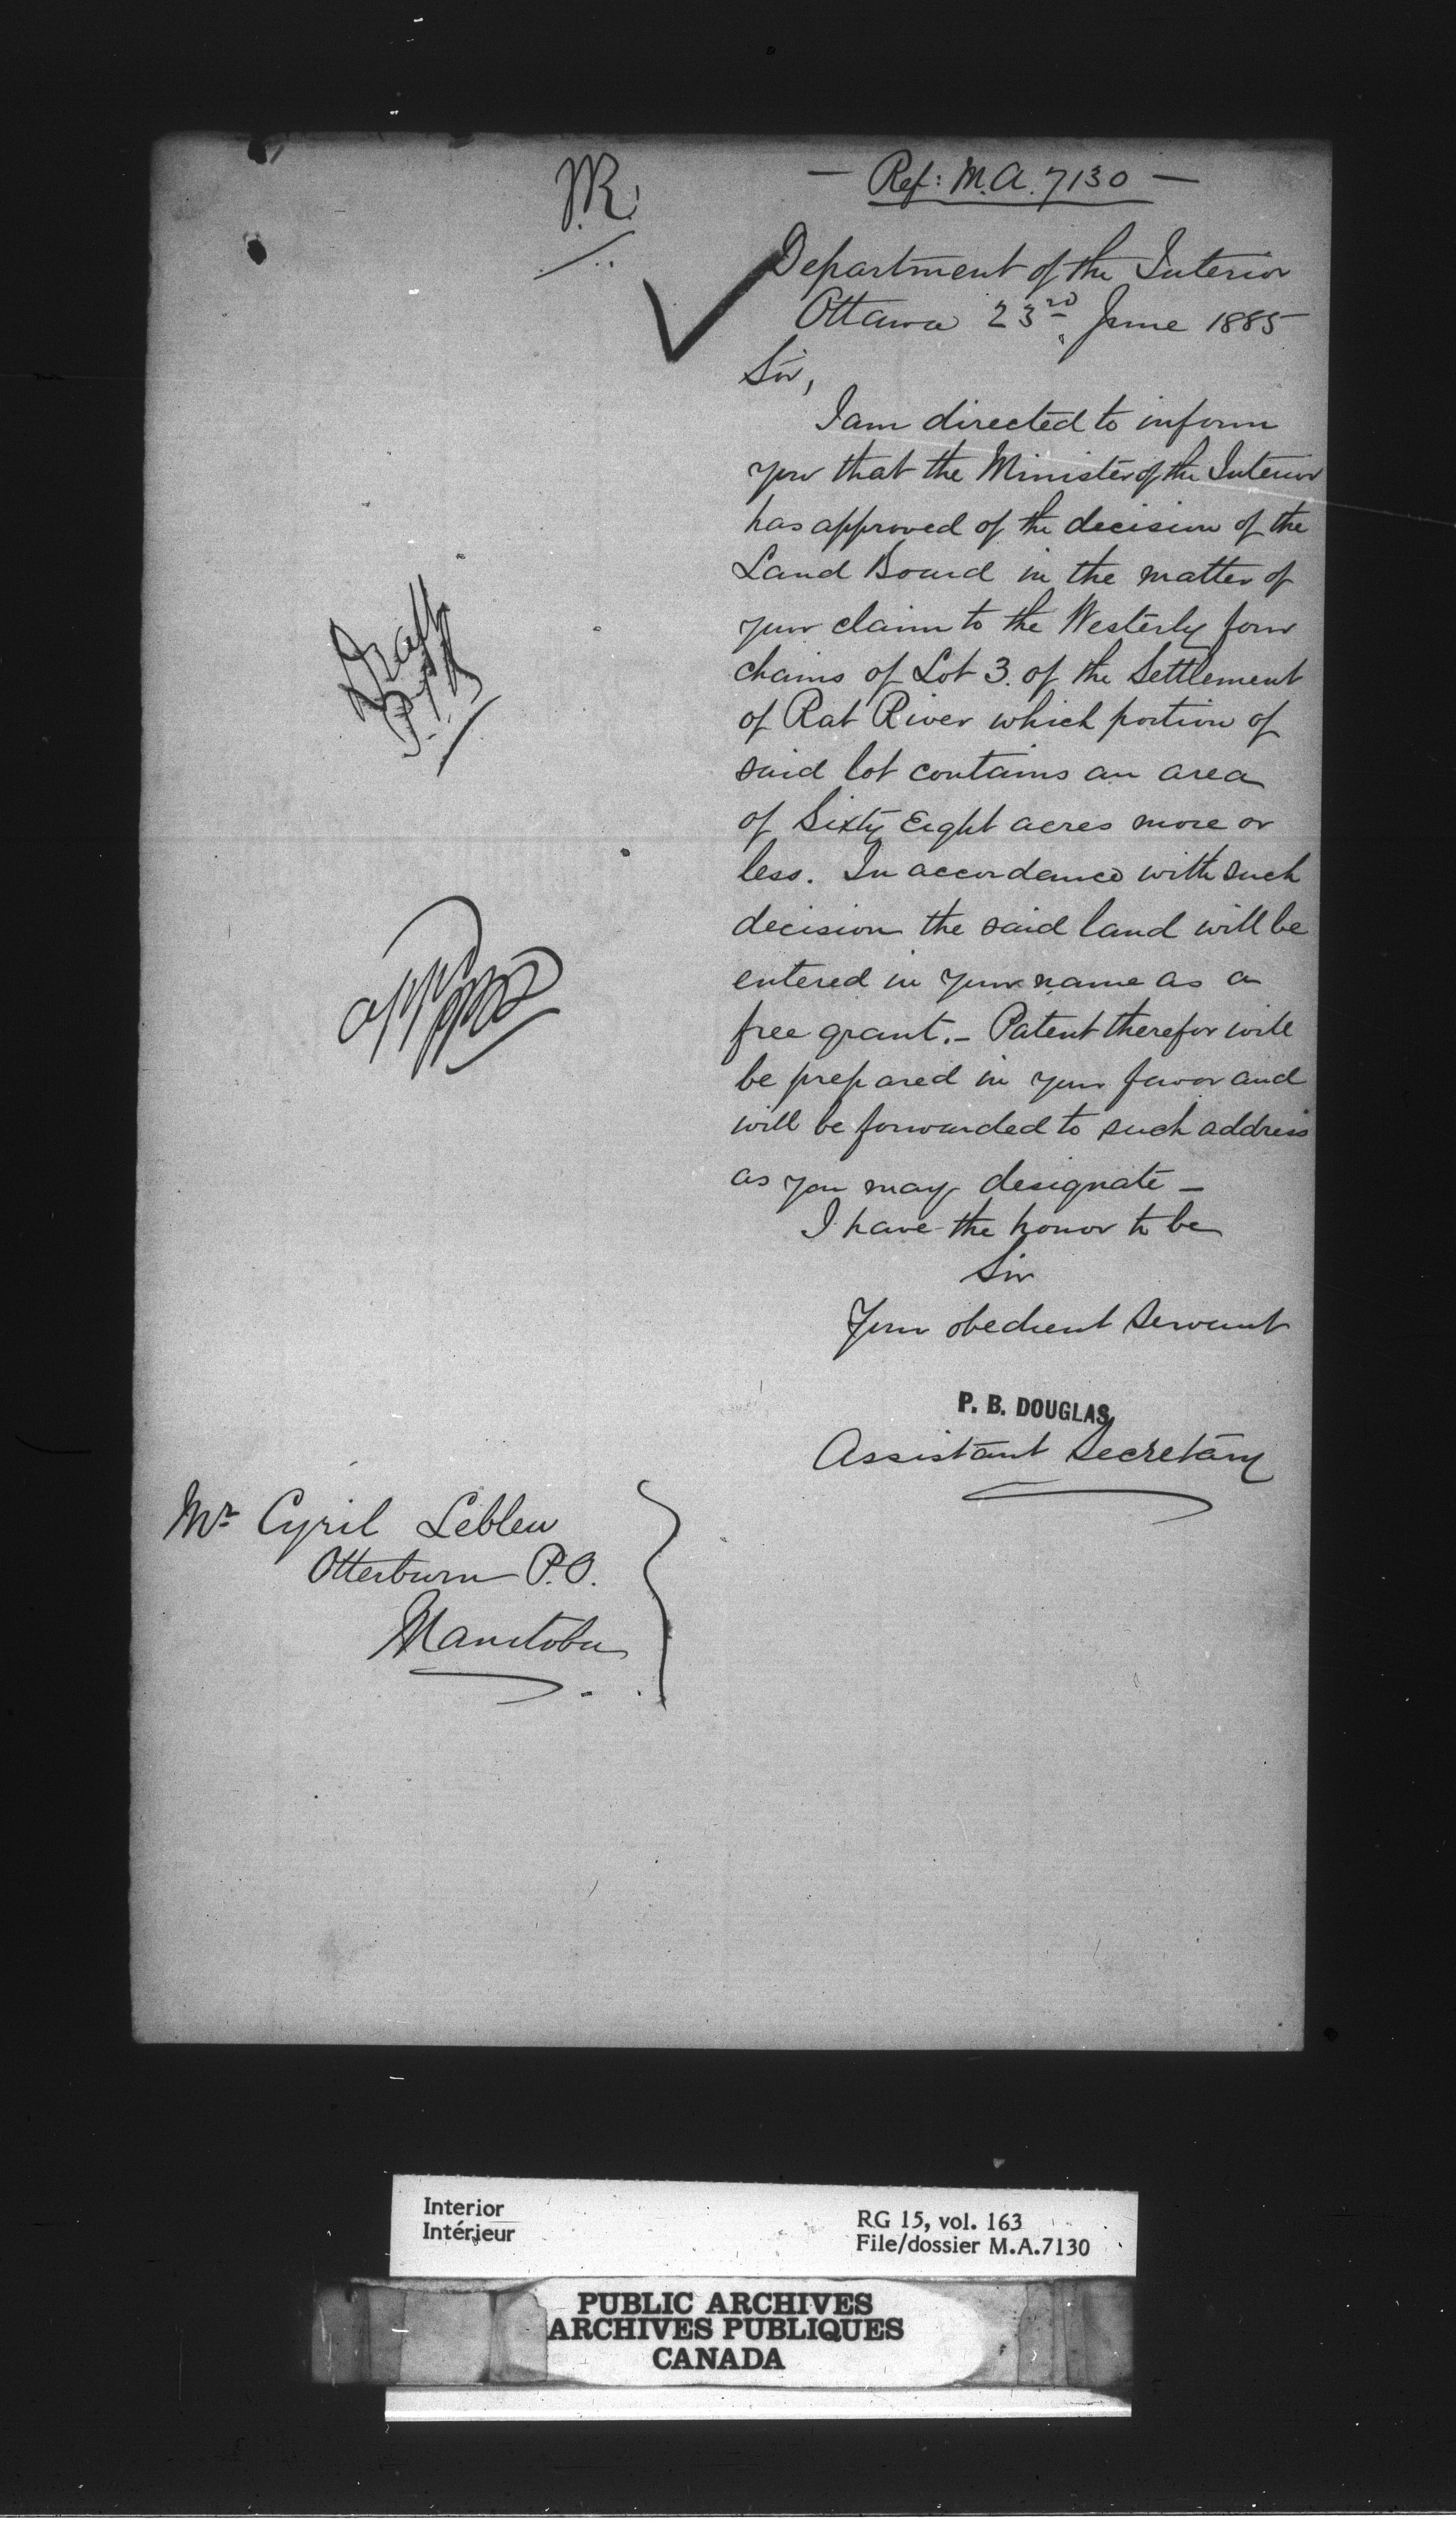 — Ref: M.A. 7130 —
Department of the Interior
Ottawa 23rd June 1885
Sir,
I am directed to inform
you that the Minister of the Interior
has approved of the decision of the
Land Board in the matter of
your claim to the Westerly four
chains of Lot 3. of the Settlement
of Rat River which portion of
said lot contains an area
of Sixty Eight acres more or
less. In accordance with such
decision the said land will be
entered in your name as a
free grant. - Patent therefor will
be prepared in your favor and
will be forwarded to such address
as you may designate -
I have the honor to be
Sir
Your obedient Servant
P. B. DOUGLAS,
Assistant Secretary
Draft
Mr Cyril Lebleu
Otterburn P.O.
Manitoba
Interior
Intérieur
RG 15, vol. 163
File/dossier M.A.7130
PUBLIC ARCHIVES
ARCHIVES PUBLIQUES
CANADA